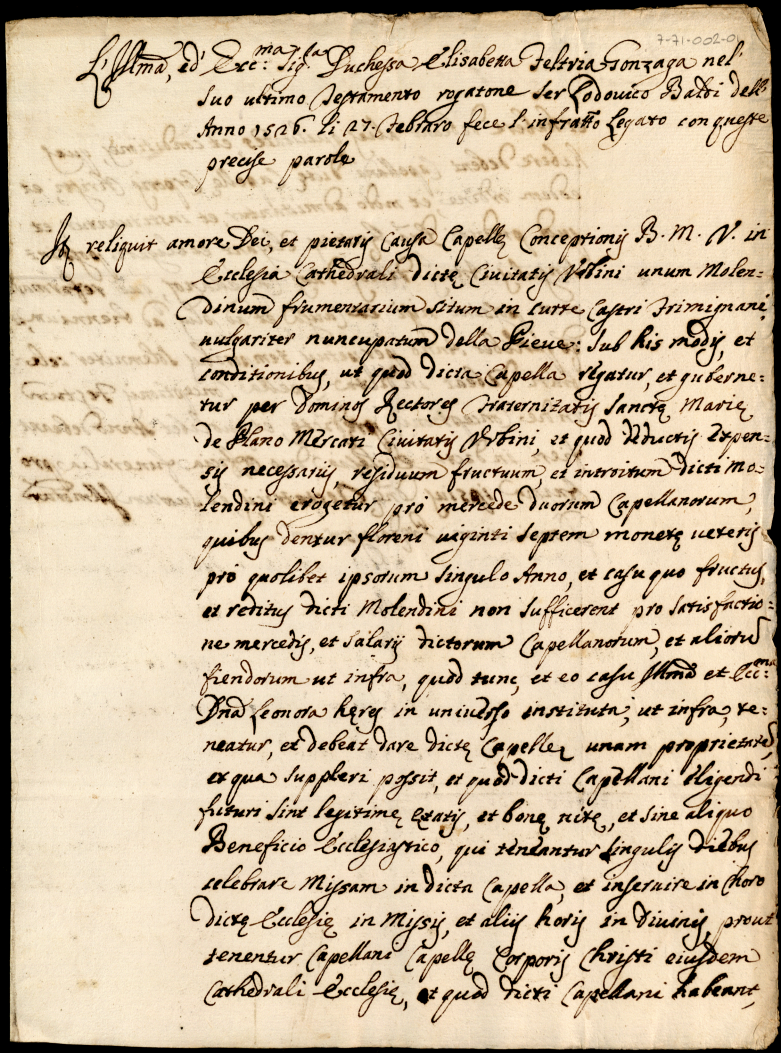 7-71-002-01
L'Illma, ed' Eccma: Sigra Duchessa Elisabetta Feltria Gonzaga nel'
suo ultimo Testamento rogatone Ser Lodovico Baldi dell'
Anno 1526. li 27. Febraro fece l'infratto Legato con queste
precise parole
Itē reliquit amore Dei, et pietatis causa Capellę Conceptionis B. M. V. in
Ecclesia Cathedrali dictę Civitatis Urbini unum Molen=
dinum frumentarium situm in curte Castri Frimignani,
vulgariter nuncupatum della Pieve: sub his modis, et
conditionibus, ut quod dicta Capella regatur, et guberne=
tur per Dominos Rectores Fraternitatis Sanctę Marię
de Plano Mercati Civitatis Urbini, et quod deductis expen=
sis necessariis, residuum fructuum, et introitum dicti mo=
lendini erogetur pro mercede duorum Capellanorum,
quibus dentur floreni viginti septem monetę veteris
pro quolibet ipsorum singulo Anno, et casu quo fructus,
et reditus dicti Molendini non sufficerent pro satisfactio=
ne mercedis, et salarij dictorum Capellanorum, et aliorū
fiendorum ut infra, quod tunc, et eo casu Illma et Eccma:
Dnā Leonora hęres in universo instituta, ut infra, te=
neatur, et debeat dare dictę Capellę unam proprietatē,
ex qua suppleri possit, et quod dicti Capellani eligendi
futuri sint legitimę ętatis, et bonę vitę, et sine aliquo
Beneficio Ecclesiastico, qui teneantur singulis diebus
celebrare Missam in dicta Capella, et inservire in choro
dictę Ecclesię in Missis, et aliis horis in Divinis, prout
tenentur Capellani Capellę Corporis Christi eiusdem
Cathedrali Ecclesię, et quod dicti Capellani habeant,